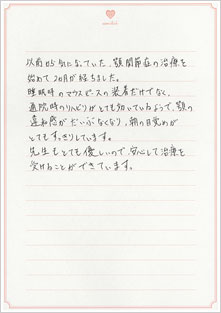 以前から気になっていた、顎関節症の治療を
始めて2か月が経ちました。
睡眠時のマウスピースの装着だけでなく、
通院時のリハビリがとても効いているようで、顎の
違和感がだいぶなくなり、朝の目覚めが
とてもすっきりしています。
先生もとても優しいので、安心して治療を
受けることができています。